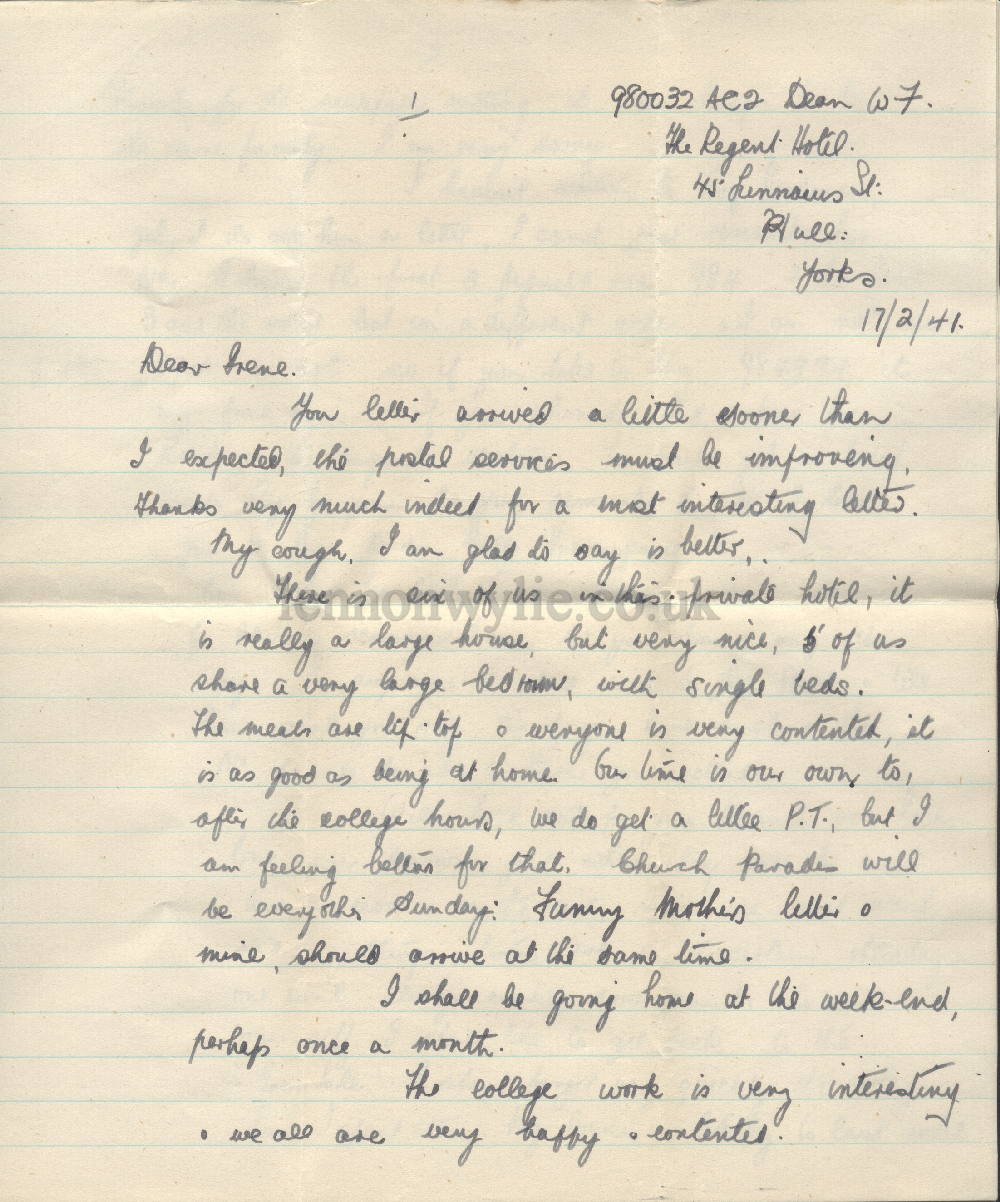 1
980032 AC2 Dean W F.
The Regent Hotel.
45 Linnaeus St:
Hull:
Yorks.
17/2/41.
Dear Irene.
You letter arrived a little sooner than
I expected, the postal services must be improving,
Thanks very much indeed for a most interesting letter.
My cough, I am glad to say is better,.
There is six of us in this private hotel, it
lennonwylie.co.uk
is really a large house, but very nice, 5 of us
share a very large bedroom, with single beds.
The meals are tip-top & everyone is very contented, it
is as good as being at home. Our time is our own to,
after the college hours, we do get a little P.T., but I
am feeling better for that. Church Parades will
be everyother Sunday: Funny Mothers letter &
mine, should arrive at the same time.
I shall be going home at the week-end,
perhaps once a month.
The college work is very interesting
& we all are very happy & contented.